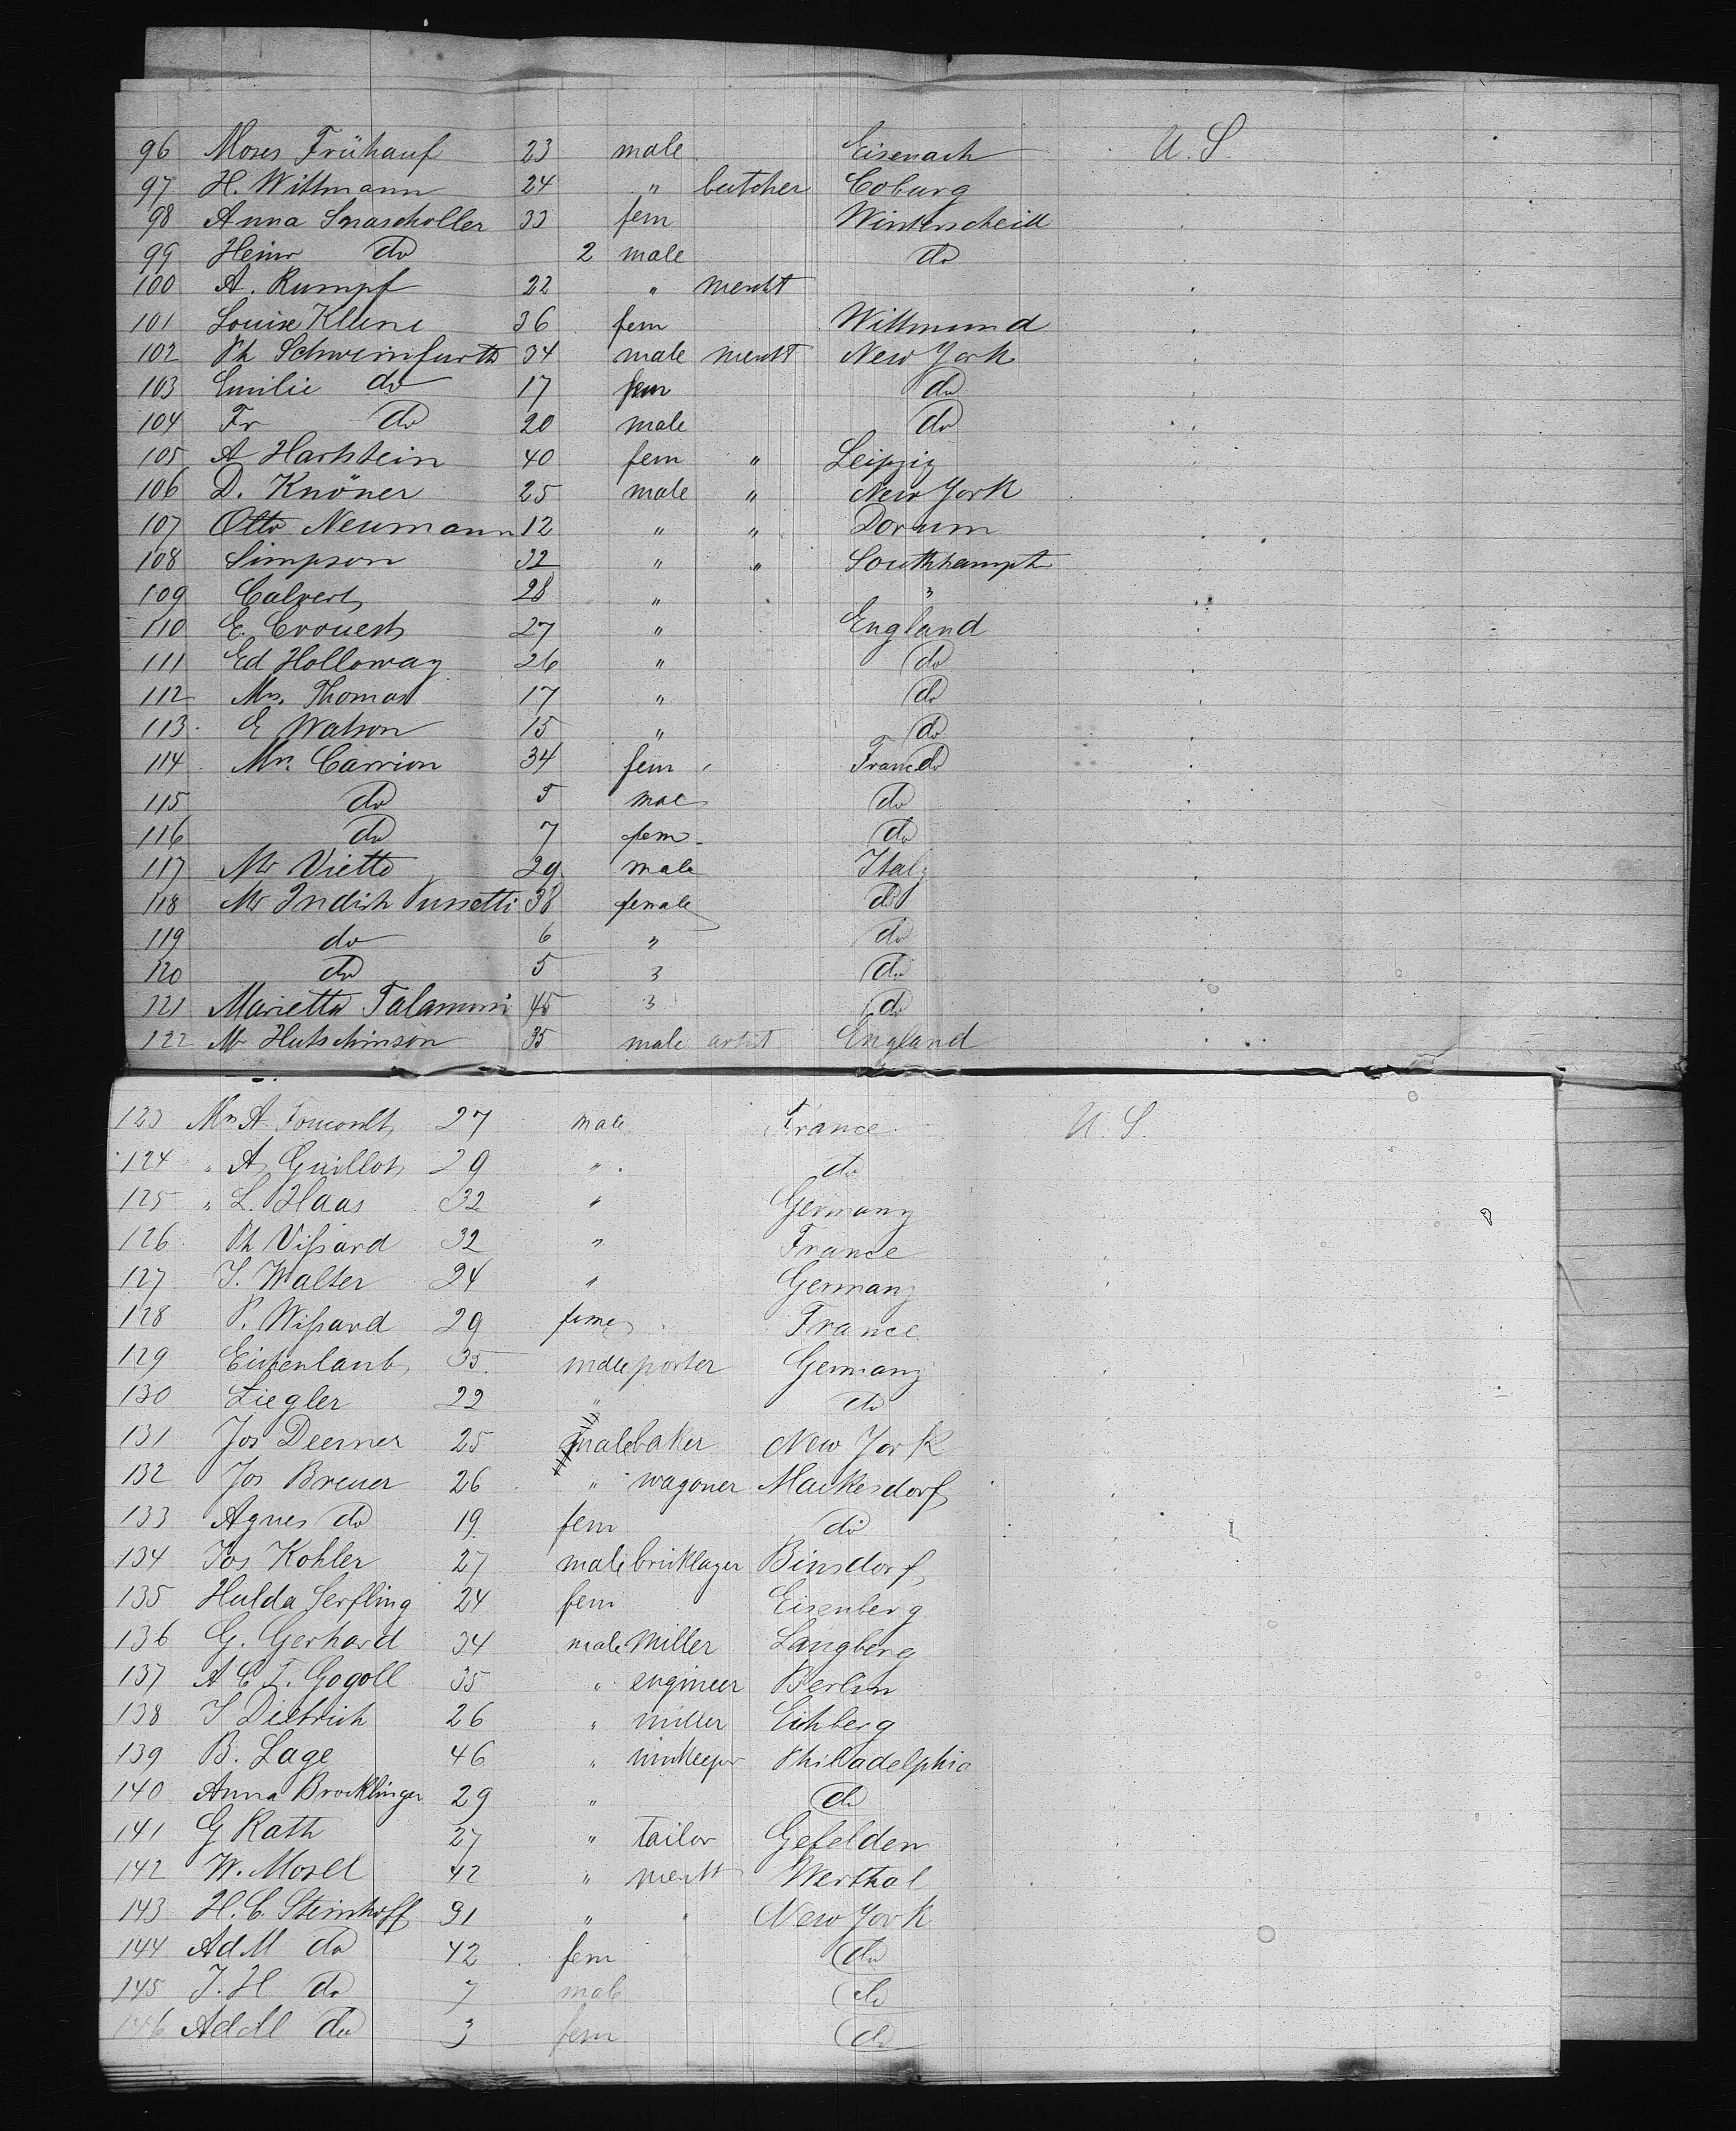 96 Moses Frühauf 23 male Eisenach U. S.
97 H. Wittmann 24 " butcher Coburg
98 Anna 33 fem
99 Heinr do 2 male do
100 A. Rumpf 22 " mercht
101 Louise Kleine 36 fem Wittmund
102 Ph Schweinfurth 34 male mercht New York
103 Emilie do 17 fem do
104 Fr do 20 male do
105 A Hartstein 40 fem " Leipzig
106 D. Knöner 25 male " New York
107 Otto Neumann 12 " " Dorum
108 Simpson 32 " " Southhampt
109 Calvert 28 " "
110 E. Crouest 27 " England
111 Ed Holloway 26 " do
112 Mrs. Thomas 17 " do
113 E Watson 15 " do
114 Mrs. Carrion 34 fem France
115 do 5 mae do
116 do 7 fem do
117 Mr Vietto 29 male Italy
118 Mr 38 female do
119 do 6 " do
120 do 5 " do
121 Marietta 45 " do
122 Mr Hutschinson 35 male artist England
123 A. 27 male France U. S.
124 " A. Guillot 29 " do
125 " L. Haas 32 " Germany
126 Ph Vißard 32 " France
127 S. Walter 24 " Germany
128 P. Wißard 29 France
129 35 male porter Germany
130 Ziegler 22 " do
131 Jos Deerner 25 male baker New York
132 Jos Breuer 26 " wagoner Mackesdorf
133 Agnes do 19 fem do
134 Jos Kohler 27 male bricklayer Binsdorf
135 Hulda Serfling 24 fem Eisenberg
136 G. Gerhard 34 male Miller Langberg
137 A C T. Gogoll 35 " engineer Berlin
138 S Dietrich 26 " miller Eichberg
139 B. Lage 46 " innkeeper Philladelphia
140 Anna Brocklinger 29 " do
141 G Rath 27 " Tailor Gefelden
142 W. Mosell 42 " mercht Werthal
143 H. C. Steinhoff 31 " " New York
144 Ad M do 42 fem do
145 J. H do 7 male do
146 Ad M do 3 fem do